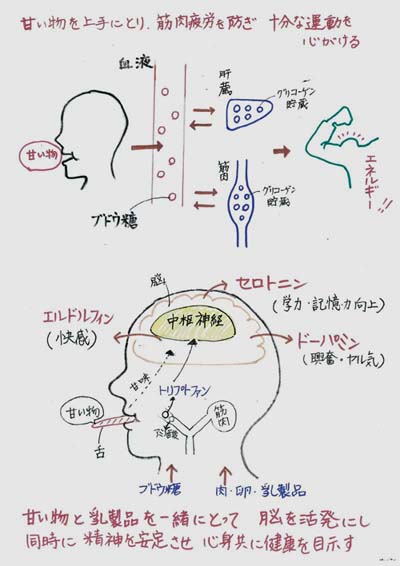 甘い物を上手にとり、筋肉疲労を防ぎ 十分な運動を
心がける
血液
肝臓
グリコーゲン
貯蔵
甘い物
筋肉
グリコーゲン
貯蔵
エネルギー!!
ブドウ糖
脳
セロトニン
(学力・記憶力向上)
中枢神経
エルドルフィン
(快感)
ドーパミン
(興奮・ヤル気)
甘味
トリプトファン
甘い物
筋肉
舌
ブドウ糖
肉・卵・乳製品
甘い物と乳製品を一緒にとって 脳を活発にし
同時に精神を安定させ 心身共に健康を目示す